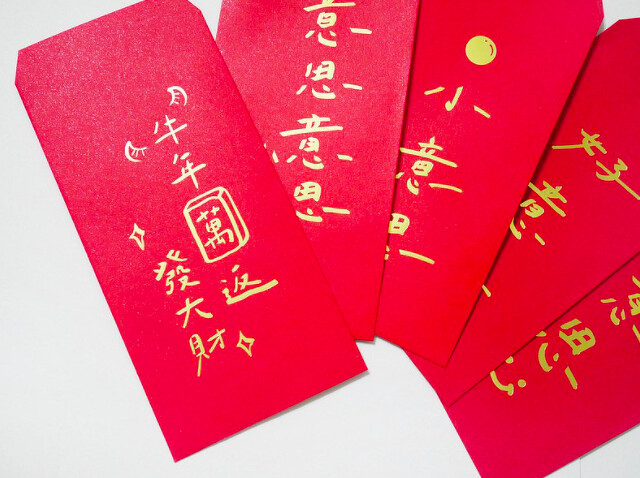 牛年萬返
發大財
意思意思
小意思
好意
思